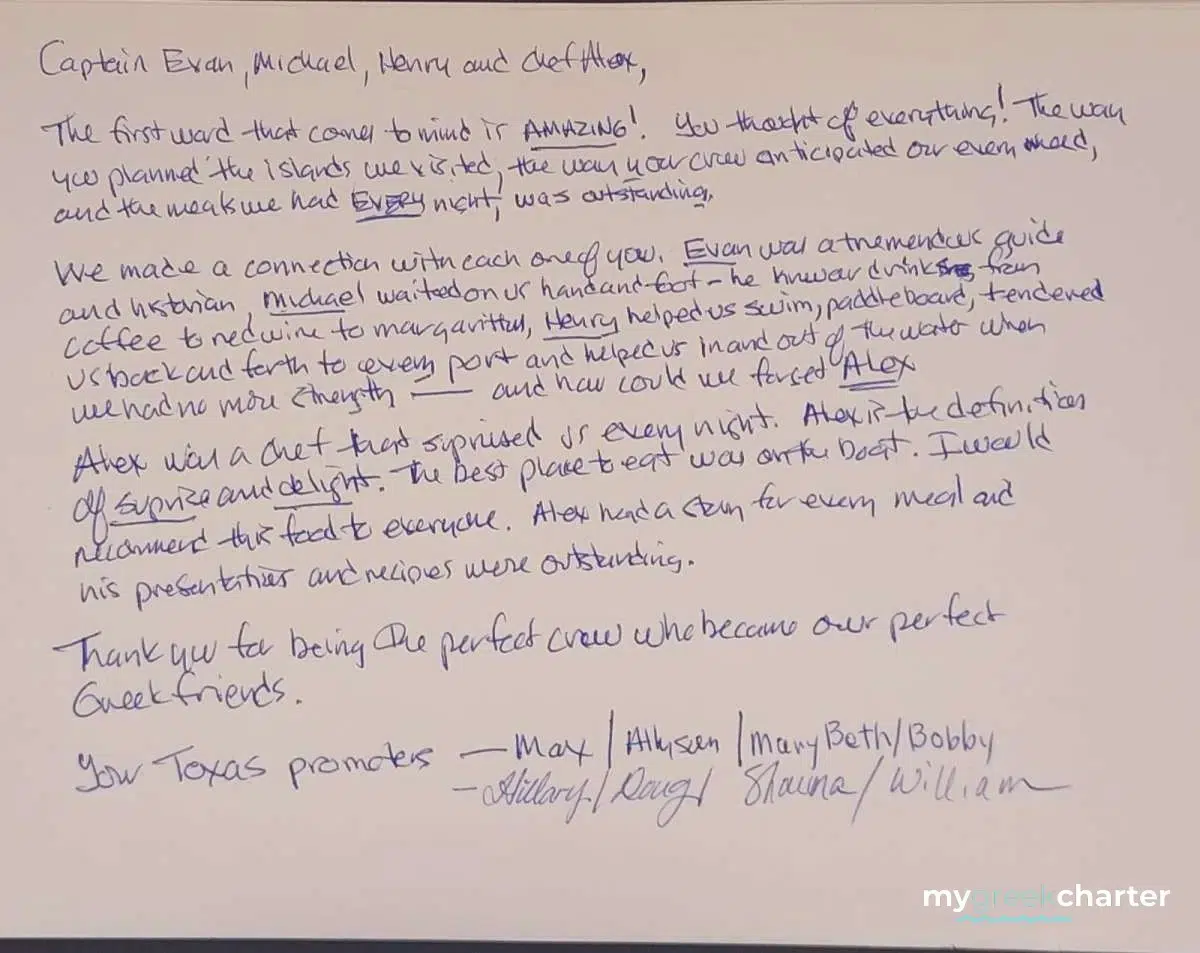 Captain Evan, Michael, Henry and Chef Alex,
The first word that comes to mind is AMAZING! You thought of everything! The way
you planned the islands we visited, the way your crew anticipated our every need,
and the meals we had EVERY night, was outstanding.
We made a connection with each one of you. Evan was a tremendous guide
and historian, Michael waited on us hand and foot - he knew our drinks from
coffee to red wine to margaritas, Henry helped us swim, paddle board, tendered
us back and forth to every port and helped us in and out of the water when
we had no more strength — and how could we forget Alex
Alex was a chef that suprised us every night. Alex is the definition
of suprize and delight. The best place to eat was on the boat. I would
recommend this food to everyone. Alex had a story for every meal and
his presentation and recipies were outstanding.
Thank you for being the perfect crew who became our perfect
Greek friends.
Your Texas promoters — Max / Allysen / Mary Beth / Bobby
- Hillary / Doug / Shauna / William
mygreekcharter